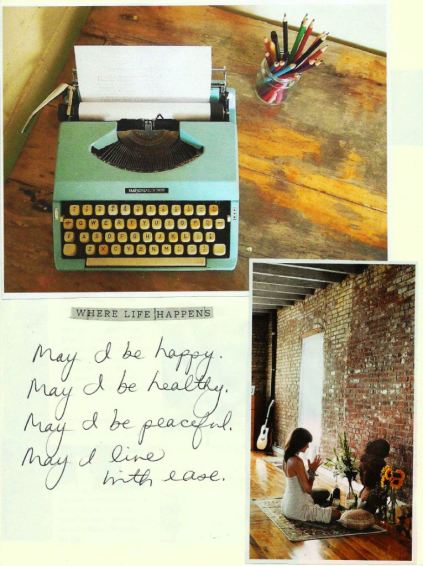 WHERE LIFE HAPPENS
May I be happy.
May I be healthy.
May I be peaceful.
May I live
with ease.